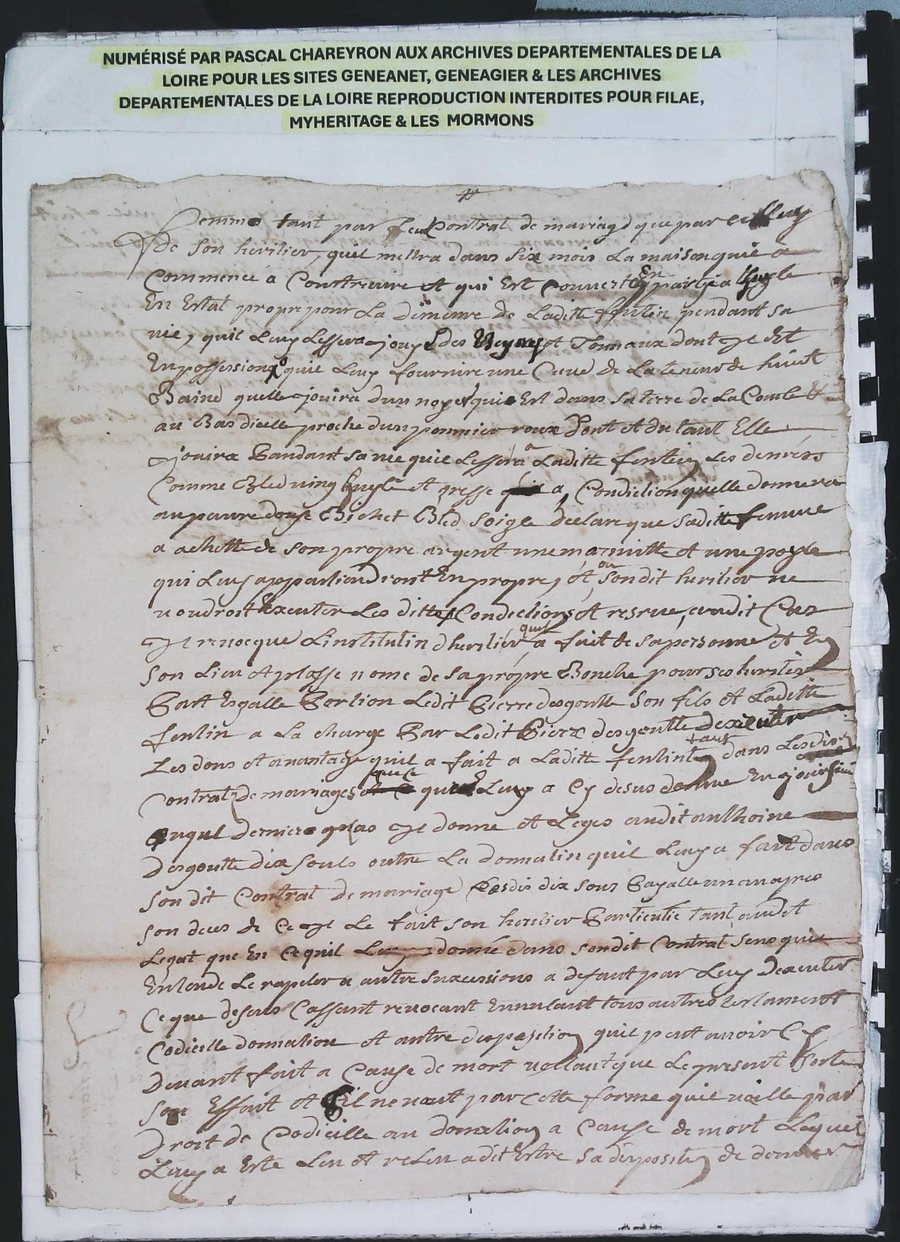 NUMÉRISÉ PAR PASCAL CHAREYRON AUX ARCHIVES DEPARTEMENTALES DE LA
LOIRE POUR LES SITES GENEANET, GENEAGIER & LES ARCHIVES
DEPARTEMENTALES DE LA LOIRE REPRODUCTION INTERDITES POUR FILAE,
MYHERITAGE & LES MORMONS
femme tant par leur Contrat de mariage que par
de son heritier, quil mettra dans six mois La maison quil a
Commence a Construire et qui Est Couverte En partie a
En Estat propre pour La demeure de Laditte pendant sa
vie, quil Luy Lessera jouyr des et Tonnaux dont Est
En possession quil Luy fournire une Cuve de La teneur de huict
quelle jouira dun noyer qui Est dans sa terre de La Combe et
au proche dun pommier Dont Elle
jouira Pandant sa vie quil Lessera a Laditte fentin Les denrées
Comme Bled ving et a Condiction quelle donnera
au pauvre douze Bichet Bled Soigle declare que saditte femme
a achetté de son propre argent une marmitte et une poyle
qui Luy appartiendront En propre, Et ou sondit heritier ne
voudroit Executer Les dittes Condictions et reserve, audit Cas
revocque Linstitution dheritier quil a fait de sa personne et En
son Lieu et plasse nome de sa propre Bouche pour ses heritier
Part Egalle Portion Ledit Pierre desgoutte son fils et Laditte
fentin a La charge Par Ledit Pierre desgoutte dexecuter
Les dons et avantage quil a fait a Laditte fentin tant dans
Contrat de mariages que Luy a Cy desus donne En
dernier donne et Legue audit anthoine
Desgoutte dix souls outre La donnation quil Luy a fait dans
son dit Contrat de mariage Lesdis dix sous Payalle un an apres
son deces de Le fait son heritier Particulie tant audit
Legat que En Ce quil Luy donne dans sondit Contrat sens quil
Entende Le rapeler a autre suxcessions a defaut par Luy Dexecuter
Ce que desus Cassant revocant Ennulant tous autres testament
Codicille donnation et autre disposition quil peut avoir Cy
Devant fait a Cause de mort vollant que Le present sorte
Son Effait et Sil ne vaut par Cette forme quil vaille par
Droit de Codicille ou donnation a Cause de mort Lequel
Luy a Este Leu et releu a dit Estre sa disposition de derniere